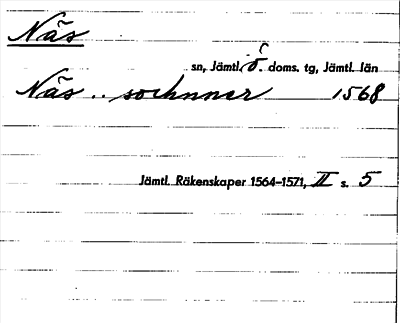 Näs
sn, Jämtl. ö. doms. tg, Jämtl. län
Näs .. sochnner 1568
Jämtl. Räkenskaper 1564–1571, II s. 5